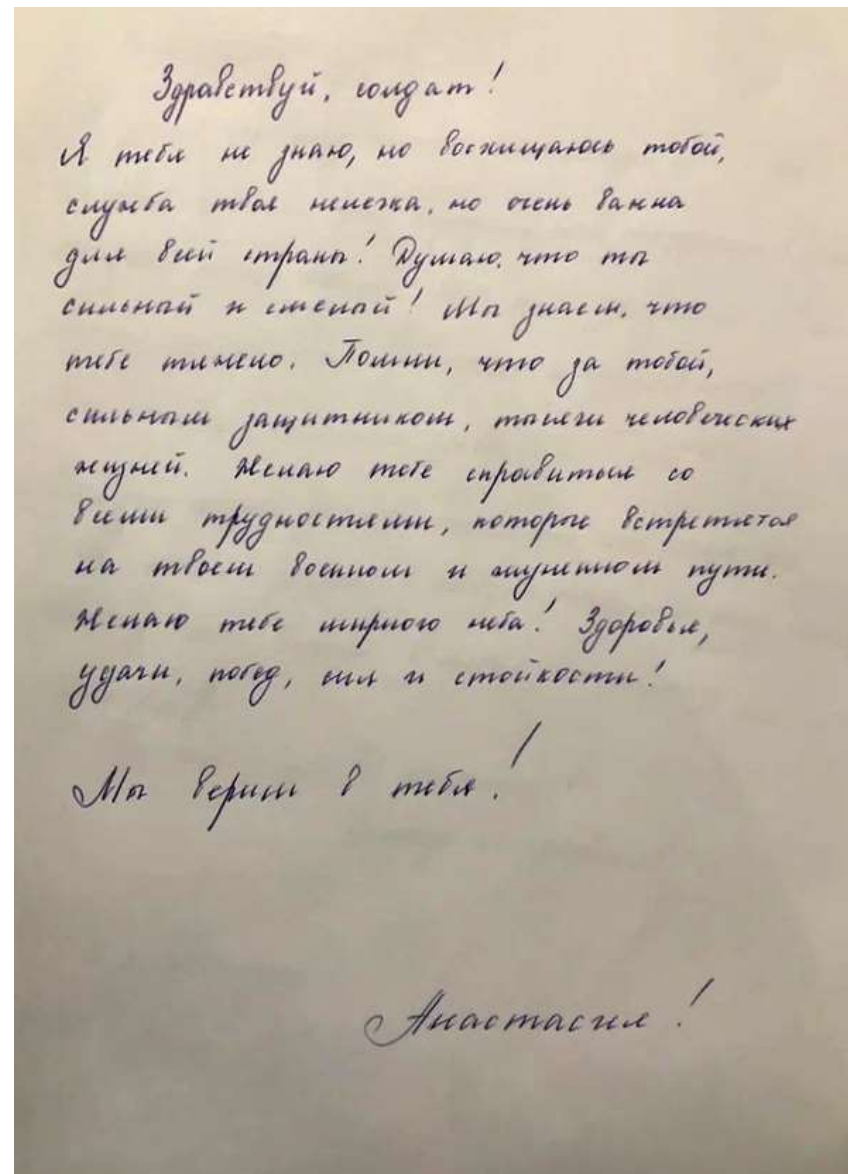 Здравствуй, солдат!
Я тебя не знаю, но восхищаюсь тобой,
служба твоя нелегка, но очень важна
для всей страны! Думаю, что ты
сильный и смелый! Мы знаем, что
тебе тяжело. Помни, что за тобой,
сильным защитником, тысячи человеческих
жизней. Желаю тебе справиться со
всеми трудностями, которые встретятся
на твоем военном и жизненном пути.
Желаю тебе мирного неба! Здоровья,
удачи, побед, сил и стойкости!
Мы верим в тебя!
Анастасия!